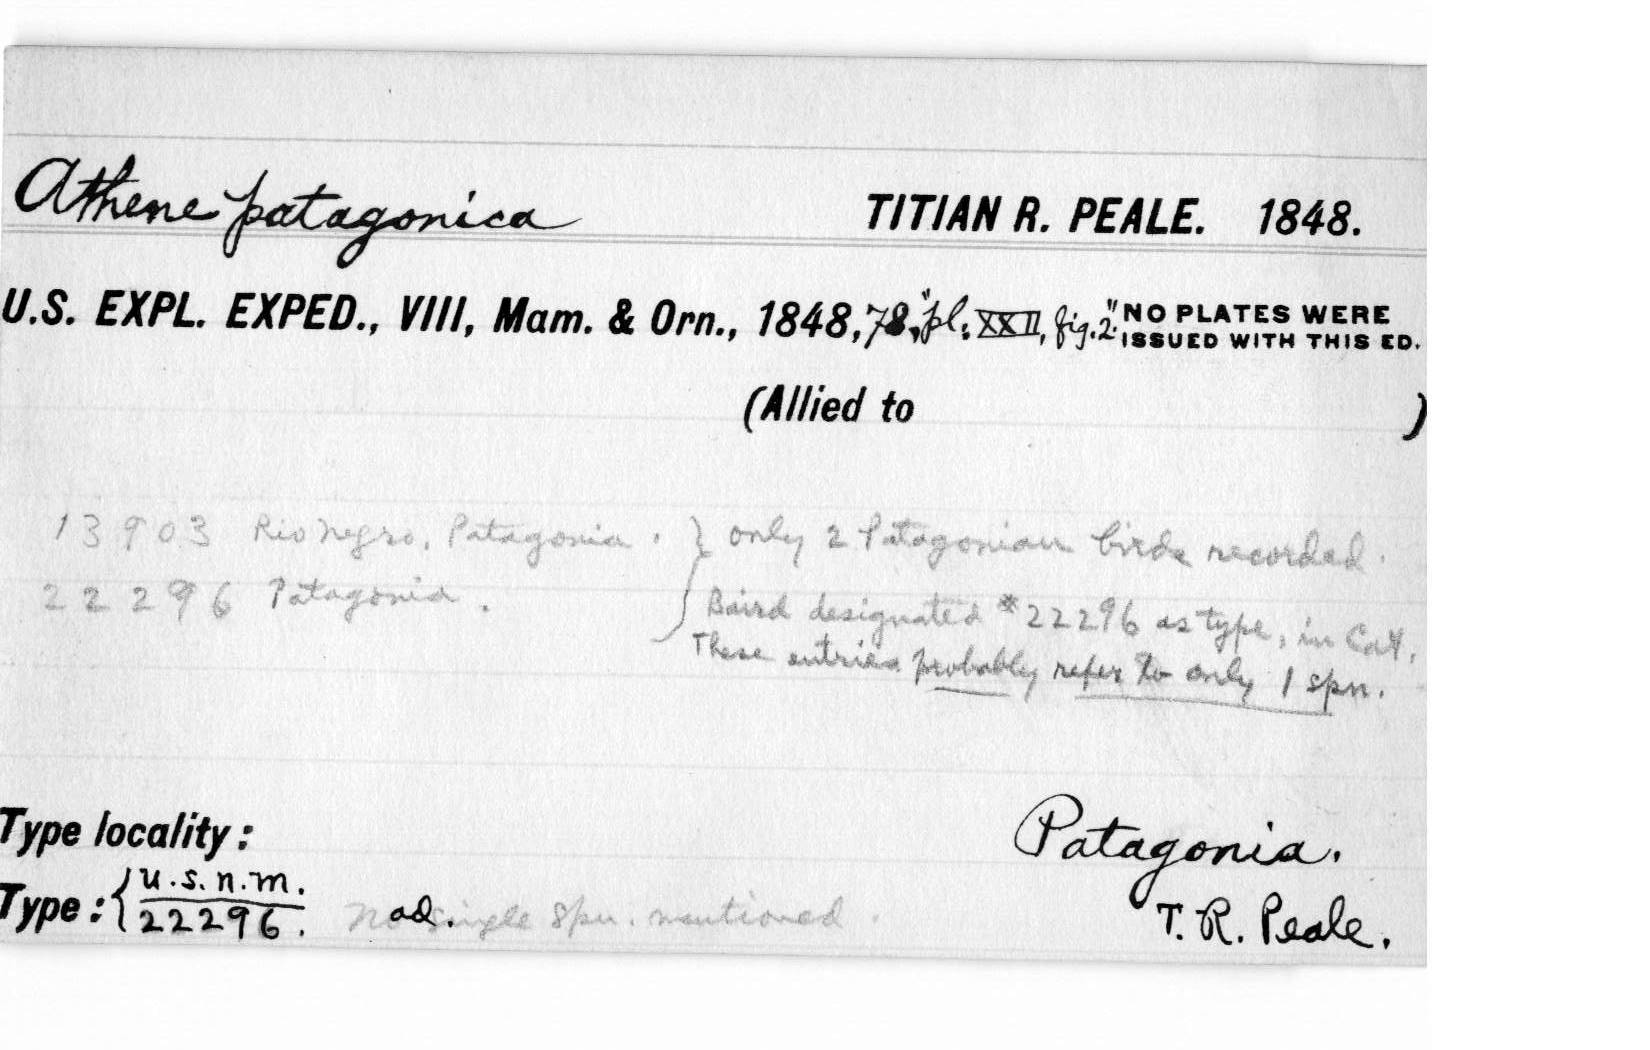 Athene patagonica TITIAN R. PEALE. 1848.
U.S. EXPL. EXPED., VIII, Mam. & Orn., 1848, 78, "pl. XXII, fig. 2." NO PLATES WERE
ISSUED WITH THIS ED.
(Allied to )
13903 Rio Negro, Patagonia. } only 2 Patagonian birds recorded.
22296 Patagonia.
Baird designated #22296 as type, in Cat.
These entries probably refer to only 1 spn.
Type locality: Patagonia.
Type: { U.S.N.M.
22296. ad. No single spn. mentioned. T. R. Peale.